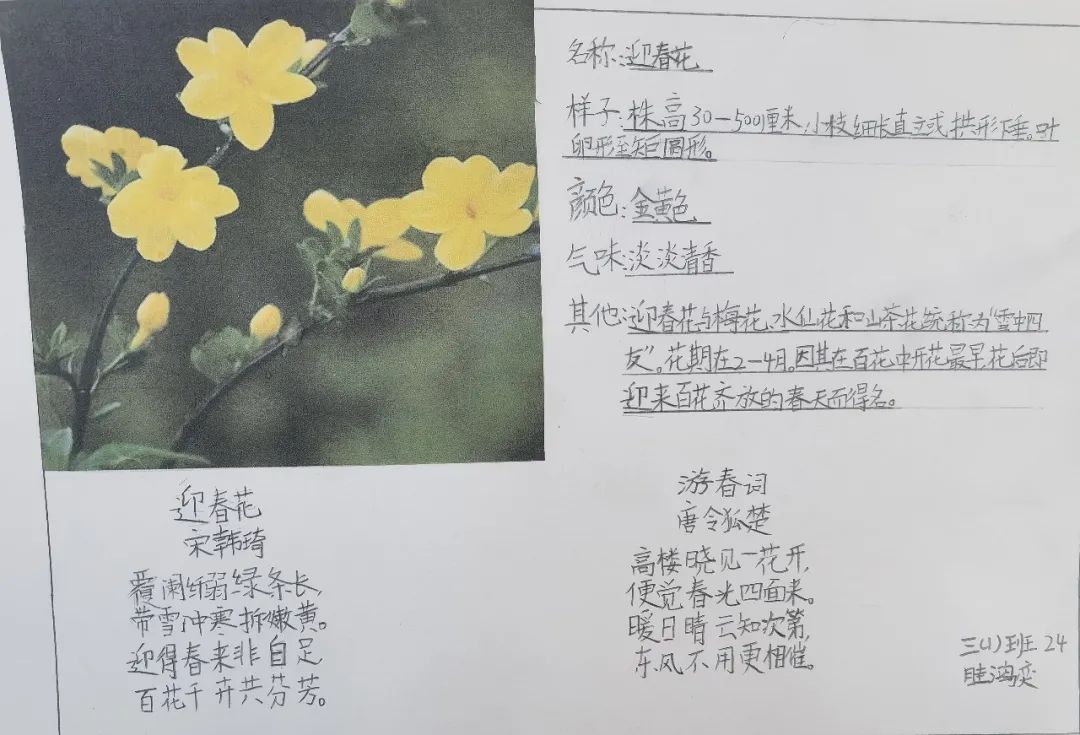 名称:迎春花
样子:株高30—500厘米,小枝细长直立或拱形下垂。叶
卵形至矩圆形。
颜色:金黄色
气味:淡淡清香
其他:迎春花与梅花、水仙花和山茶花统称为“雪中四
友”。花期在2—4月。因其在百花中开花最早花后即
迎来百花齐放的春天而得名。
迎春花
宋韩琦
覆阑纤弱绿条长,
带雪冲寒拆嫩黄。
迎得春来非自足,
百花千卉共芬芳。
游春词
唐令狐楚
高楼晓见一花开,
便觉春光四面来。
暖日晴云知次第,
东风不用更相催。
三(1)班 24
鸿奕